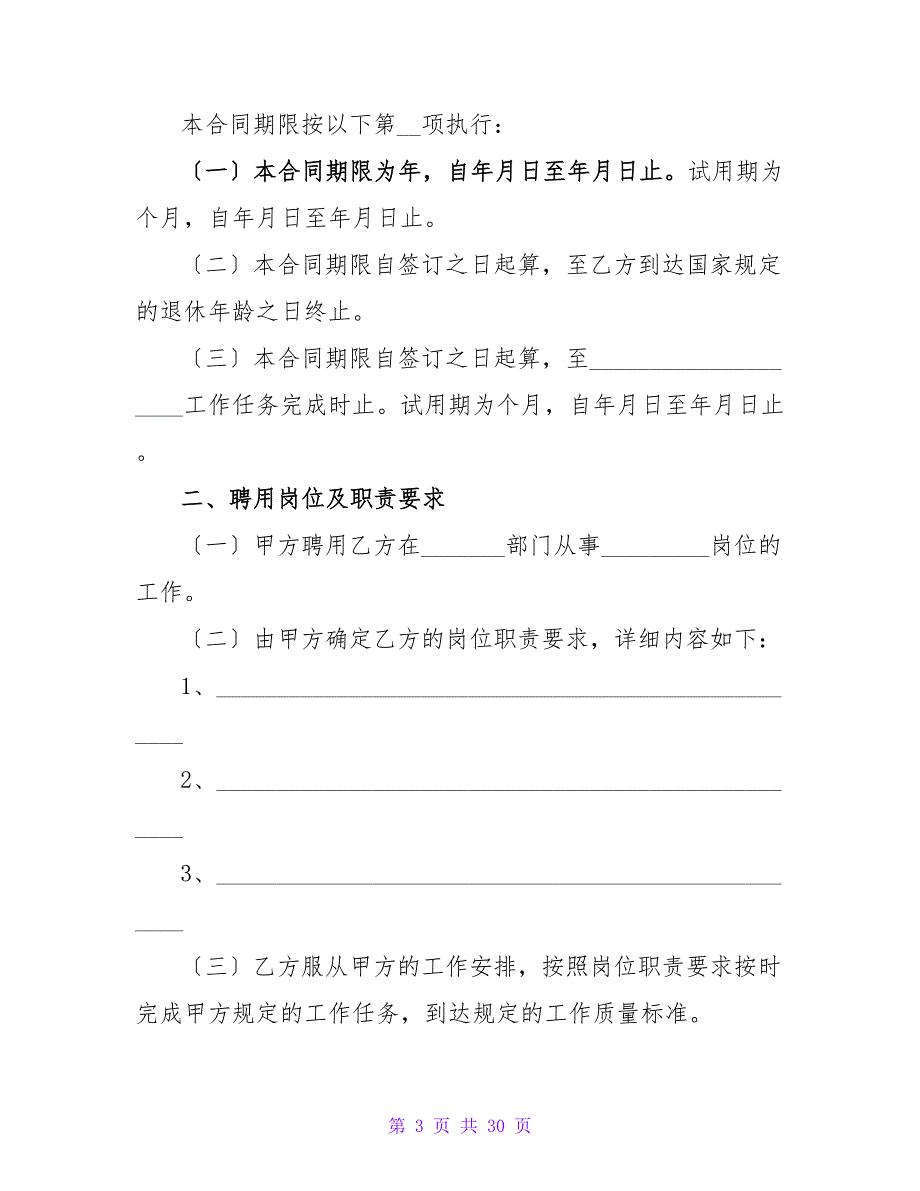 本合同期限按以下第__项执行：
〔一〕本合同期限为年，自年月日至年月日止。试用期为
个月，自年月日至年月日止。
〔二〕本合同期限自签订之日起算，至乙方到达国家规定
的退休年龄之日终止。
〔三〕本合同期限自签订之日起算，至________________
____工作任务完成时止。试用期为个月，自年月日至年月日止
。
二、聘用岗位及职责要求
〔一〕甲方聘用乙方在_______部门从事_________岗位的
工作。
〔二〕由甲方确定乙方的岗位职责要求，详细内容如下：
1、_______________________________________________
____
2、_______________________________________________
____
3、_______________________________________________
____
〔三〕乙方服从甲方的工作安排，按照岗位职责要求按时
完成甲方规定的工作任务，到达规定的工作质量标准。
第 3 页 共 30 页